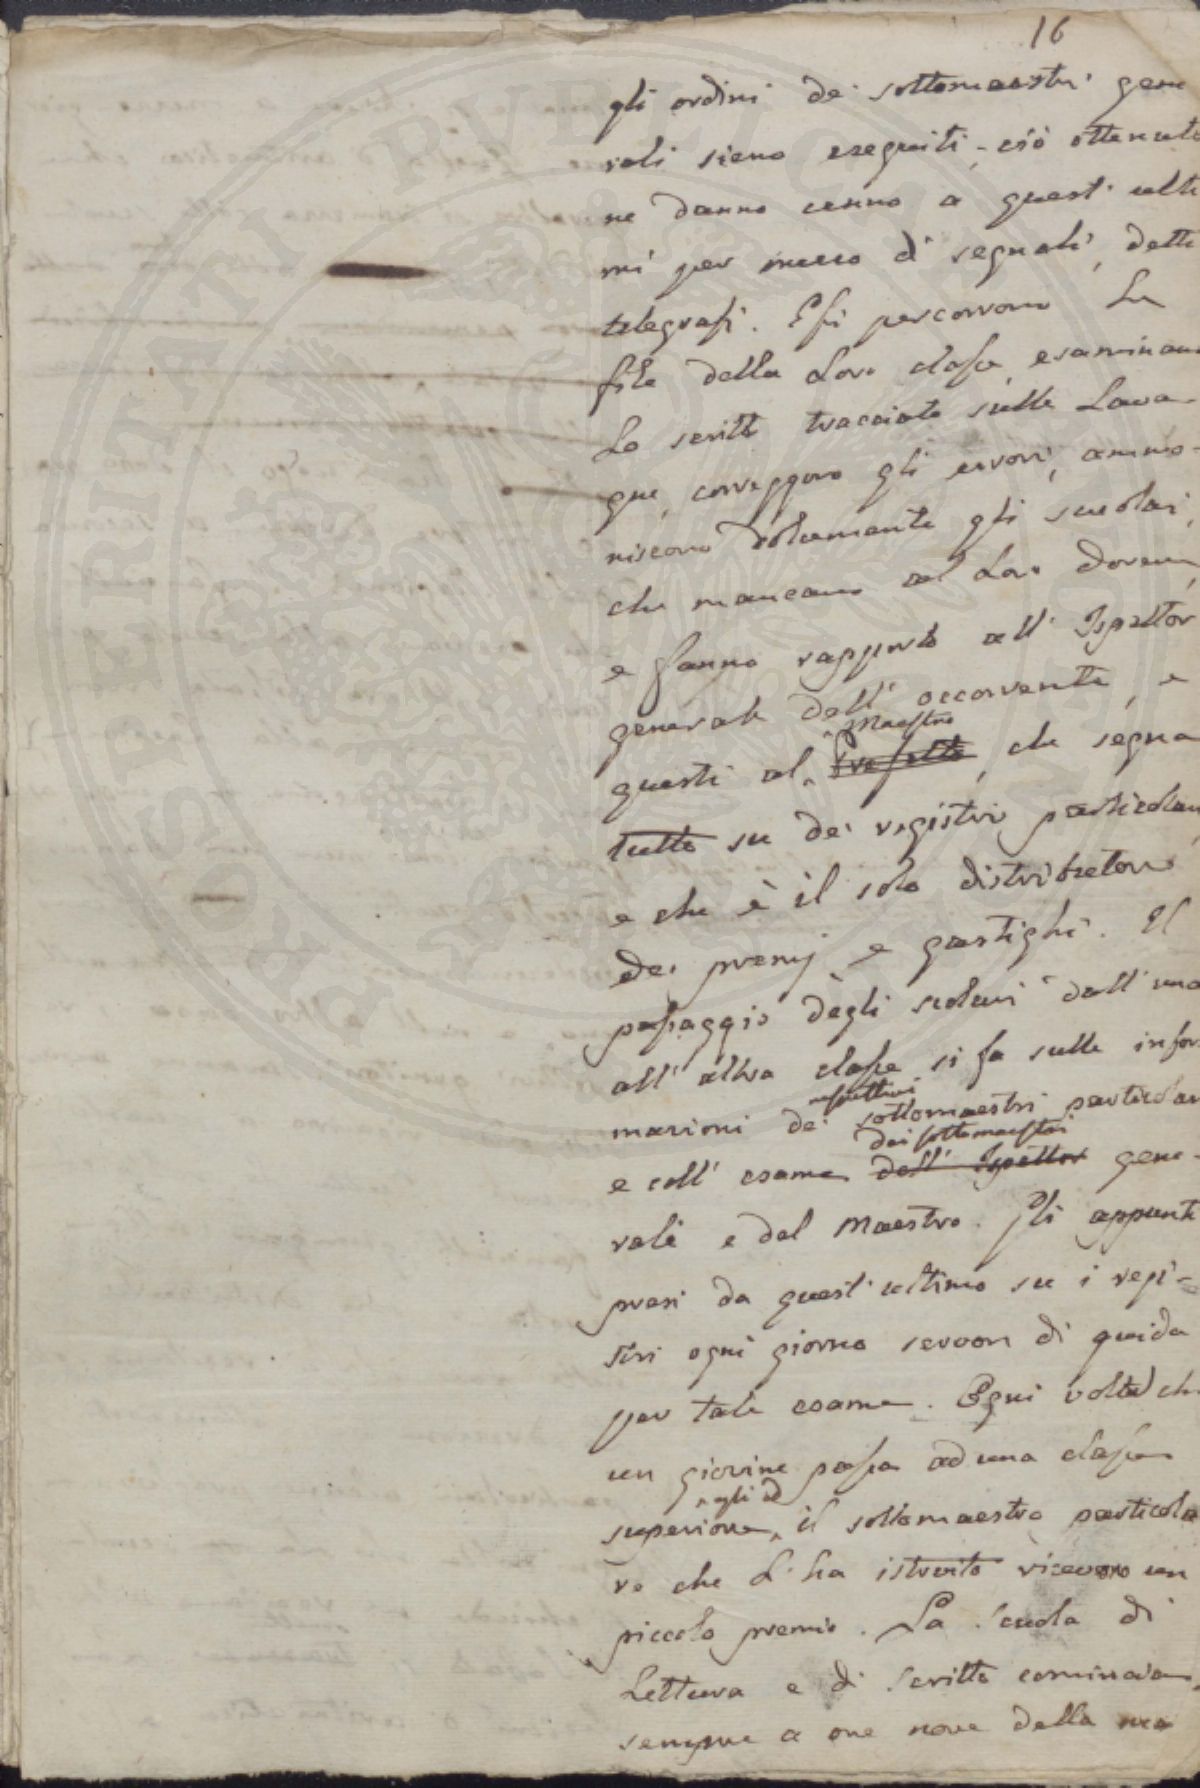 16
gli ordini de' sottomaestri gene
rali sieno eseguiti, ciò ottenuto
ne danno cenno a quest'ulti
mi per mezzo di segnali, detti
telegrafi. Essi percorrono Le
file della Loro classe, esaminano
Lo scritto tracciato sulle Lava-
gne, correggono gli errori, ammo-
niscono dolcemente gli scuolari,
che mancano al Loro dovere,
e fanno rapporto all' Ispettor
generale dell' occorrente, e
Maestro
questi al Prefetto, che segna
tutto su dei registri particolari,
e che è il solo distributore
dei premj e gastighi. Il
passaggio degli scolari dall'una
all'altra classe si fa sulle infor
rispettivi
mazioni dei sottomaestri particolari
dei sottomaestri
e coll' esame dell' Ispettor gene-
rali e dal Maestro. Gli appunti
presi da quest'ultimo su i regi-
stri ogni giorno servon di guida
per tale esame. Ogni volta che
un giovine passa ad una classe
egli ed
superiore, il sottomaestro particola
re che L'ha istruito ricevono un
piccolo premio. La Scuola di
Lettura e di Scritto comincia
sempre a ore nove della ma
PROSPERITATI PVBLICAE